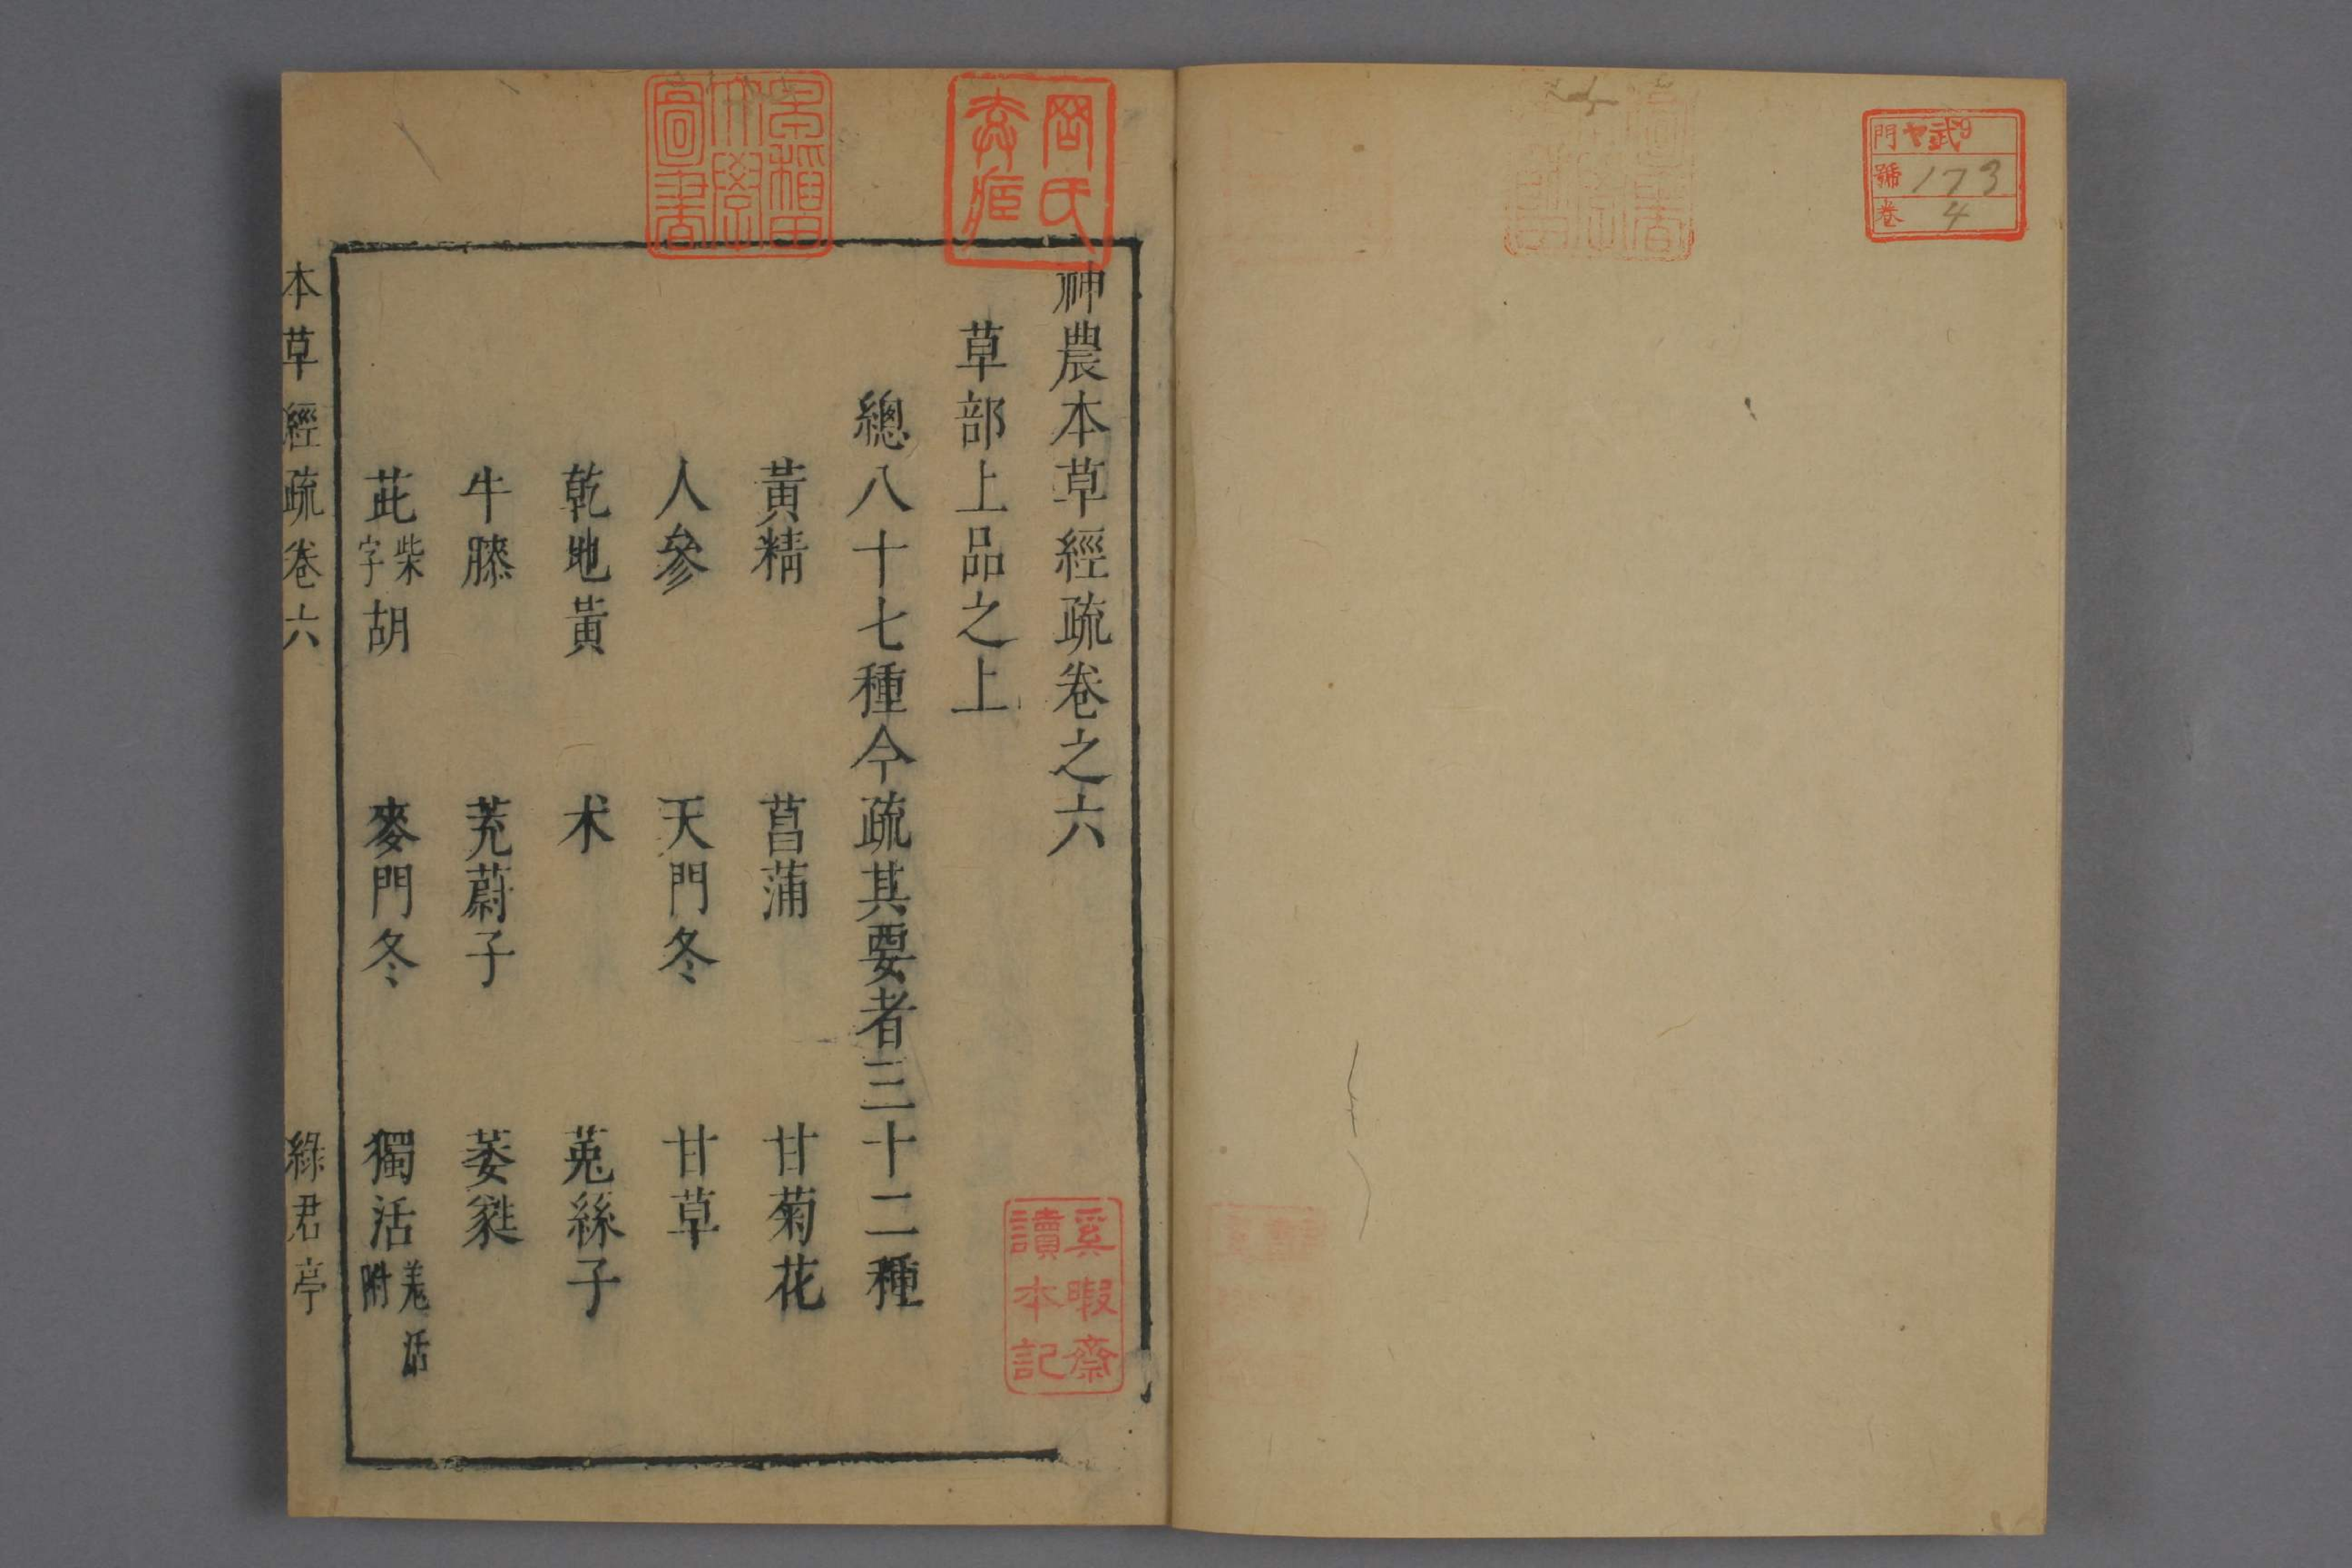 門 ヤ弐9
號 173
卷 4
神農本草經疏卷之六
草部上品之上
總八十七種今疏其要者三十二種
黃精 菖蒲 甘菊花
人參 天門冬 甘草
乾地黃 术 菟絲子
牛膝 茺蔚子 萎蕤
茈柴字胡 麥門冬 獨活羗活附
本草經疏卷六 綠君亭
早稲田大學圖書
奚暇齋讀本記